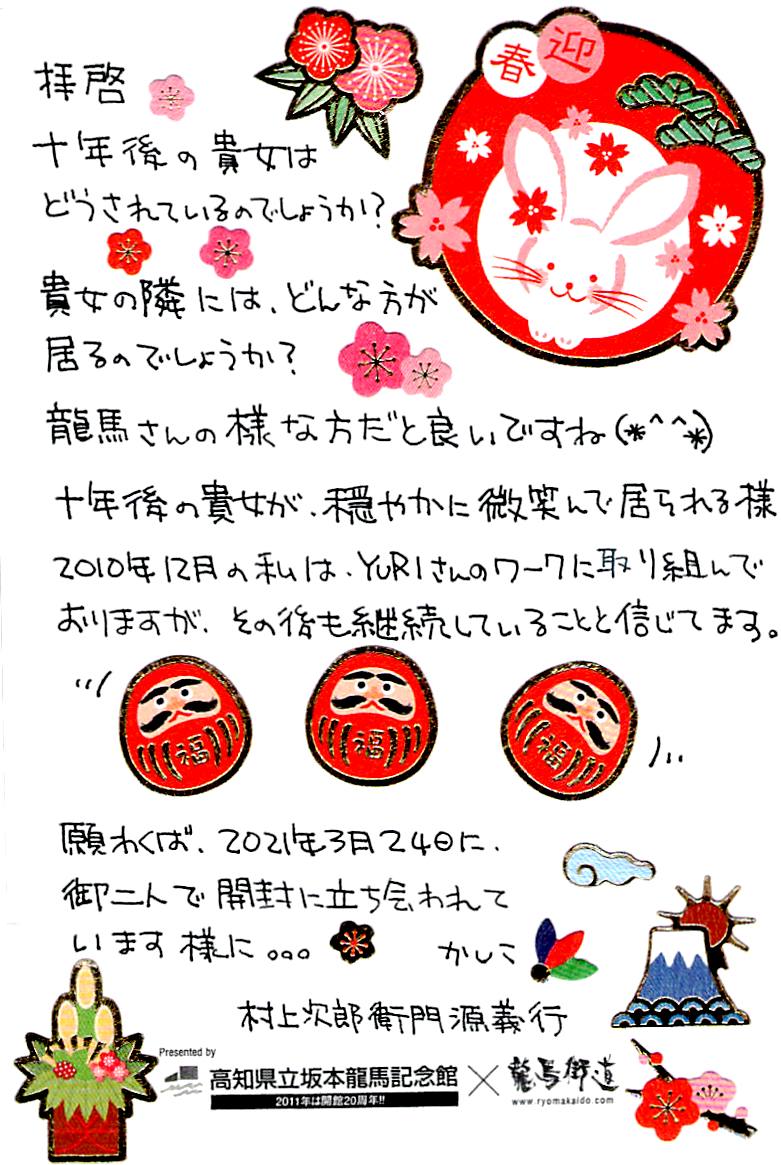 春迎
拝啓
十年後の貴女は
どうされているのでしょうか?
貴女の隣には、どんな方が
居るのでしょうか?
龍馬さんの様な方だと良いですね(*^^*)
十年後の貴女が、穏やかに微笑んで居られる様
2010年12月の私は、YURIさんのワークに取り組んで
おりますが、その後も継続していることと信じてます。
福
福
福
願わくば、2021年3月24日に、
御二人で開封に立ち会われて
います様に。。。
かしこ
村上次郎衛門源義行
Presented by
高知県立坂本龍馬記念館×龍馬街道
2011年は開館20周年!!
www.ryomakaido.com